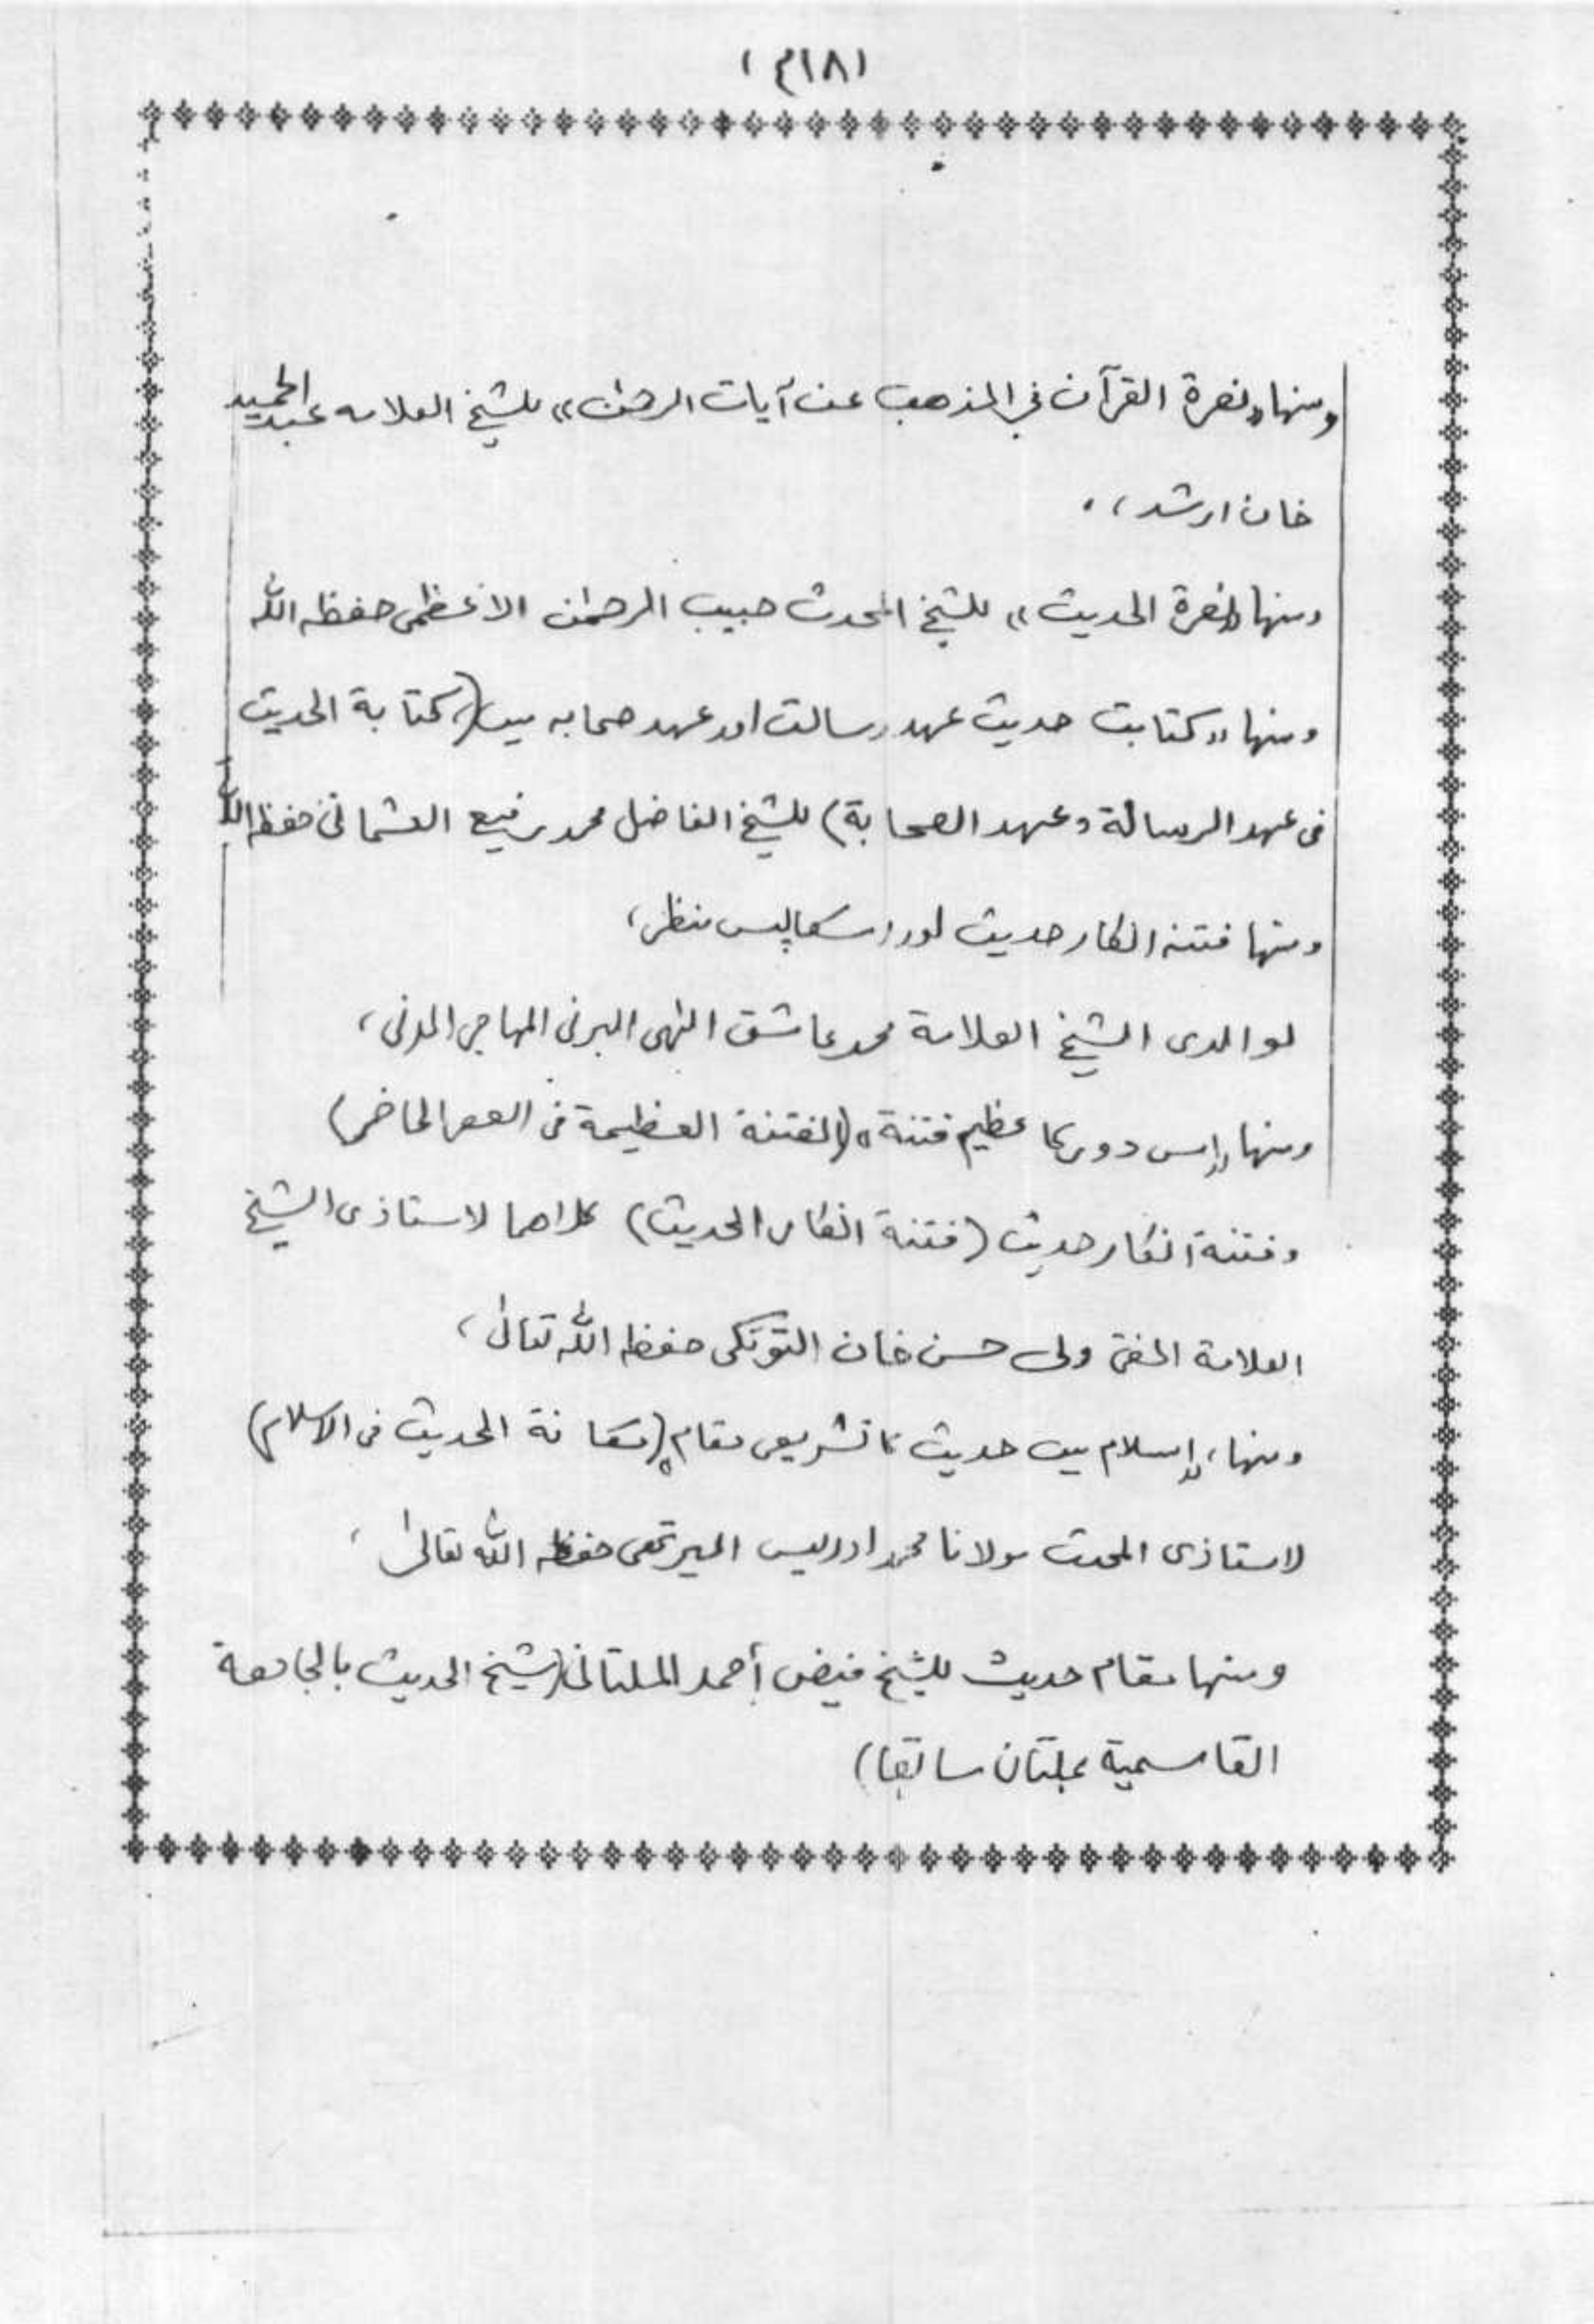 (م١٨)
ومنها «نصرة القرآن في المذهب عن آيات الرحمٰن» للشيخ العلامه عبد الحميد
خان ارشد ،
ومنها «نصرة الحديث» للشيخ المحدث حبيب الرحمٰن الاعظمى حفظه الله
ومنها «كتابت حديث عهد رسالت اور عهد صحابه ميں» (كتابة الحديث
فى عهد الرسالة وعهد الصحابة) للشيخ الفاضل محمد رفيع العثمانى حفظه الله
ومنها فتنه انكار حديث اور اسكا پس منظر ،
لوالدى الشيخ العلامة محمد عاشق الٰهى البرنى المهاجر المدنى ،
ومنها «اس دور كا عظيم فتنة» (الفتنة العظيمة فى العصر الحاضر)
وفتنة انكار حديث (فتنة انكار الحديث) كلاهما لاستاذى الشيخ
العلامة المفتى ولى حسن خان التونكى حفظه الله تعالىٰ ،
ومنها ، «إسلام ميں حديث كا تشريعى مقام» (مكانة الحديث فى الاسلام)
لاستاذى المحدث مولانا محمد ادريس الميرتهى حفظه الله تعالىٰ ،
ومنها مقام حديث للشيخ فيض أحمد الملتانى (شيخ الحديث بالجامعة
القاسمية بملتان سابقا)